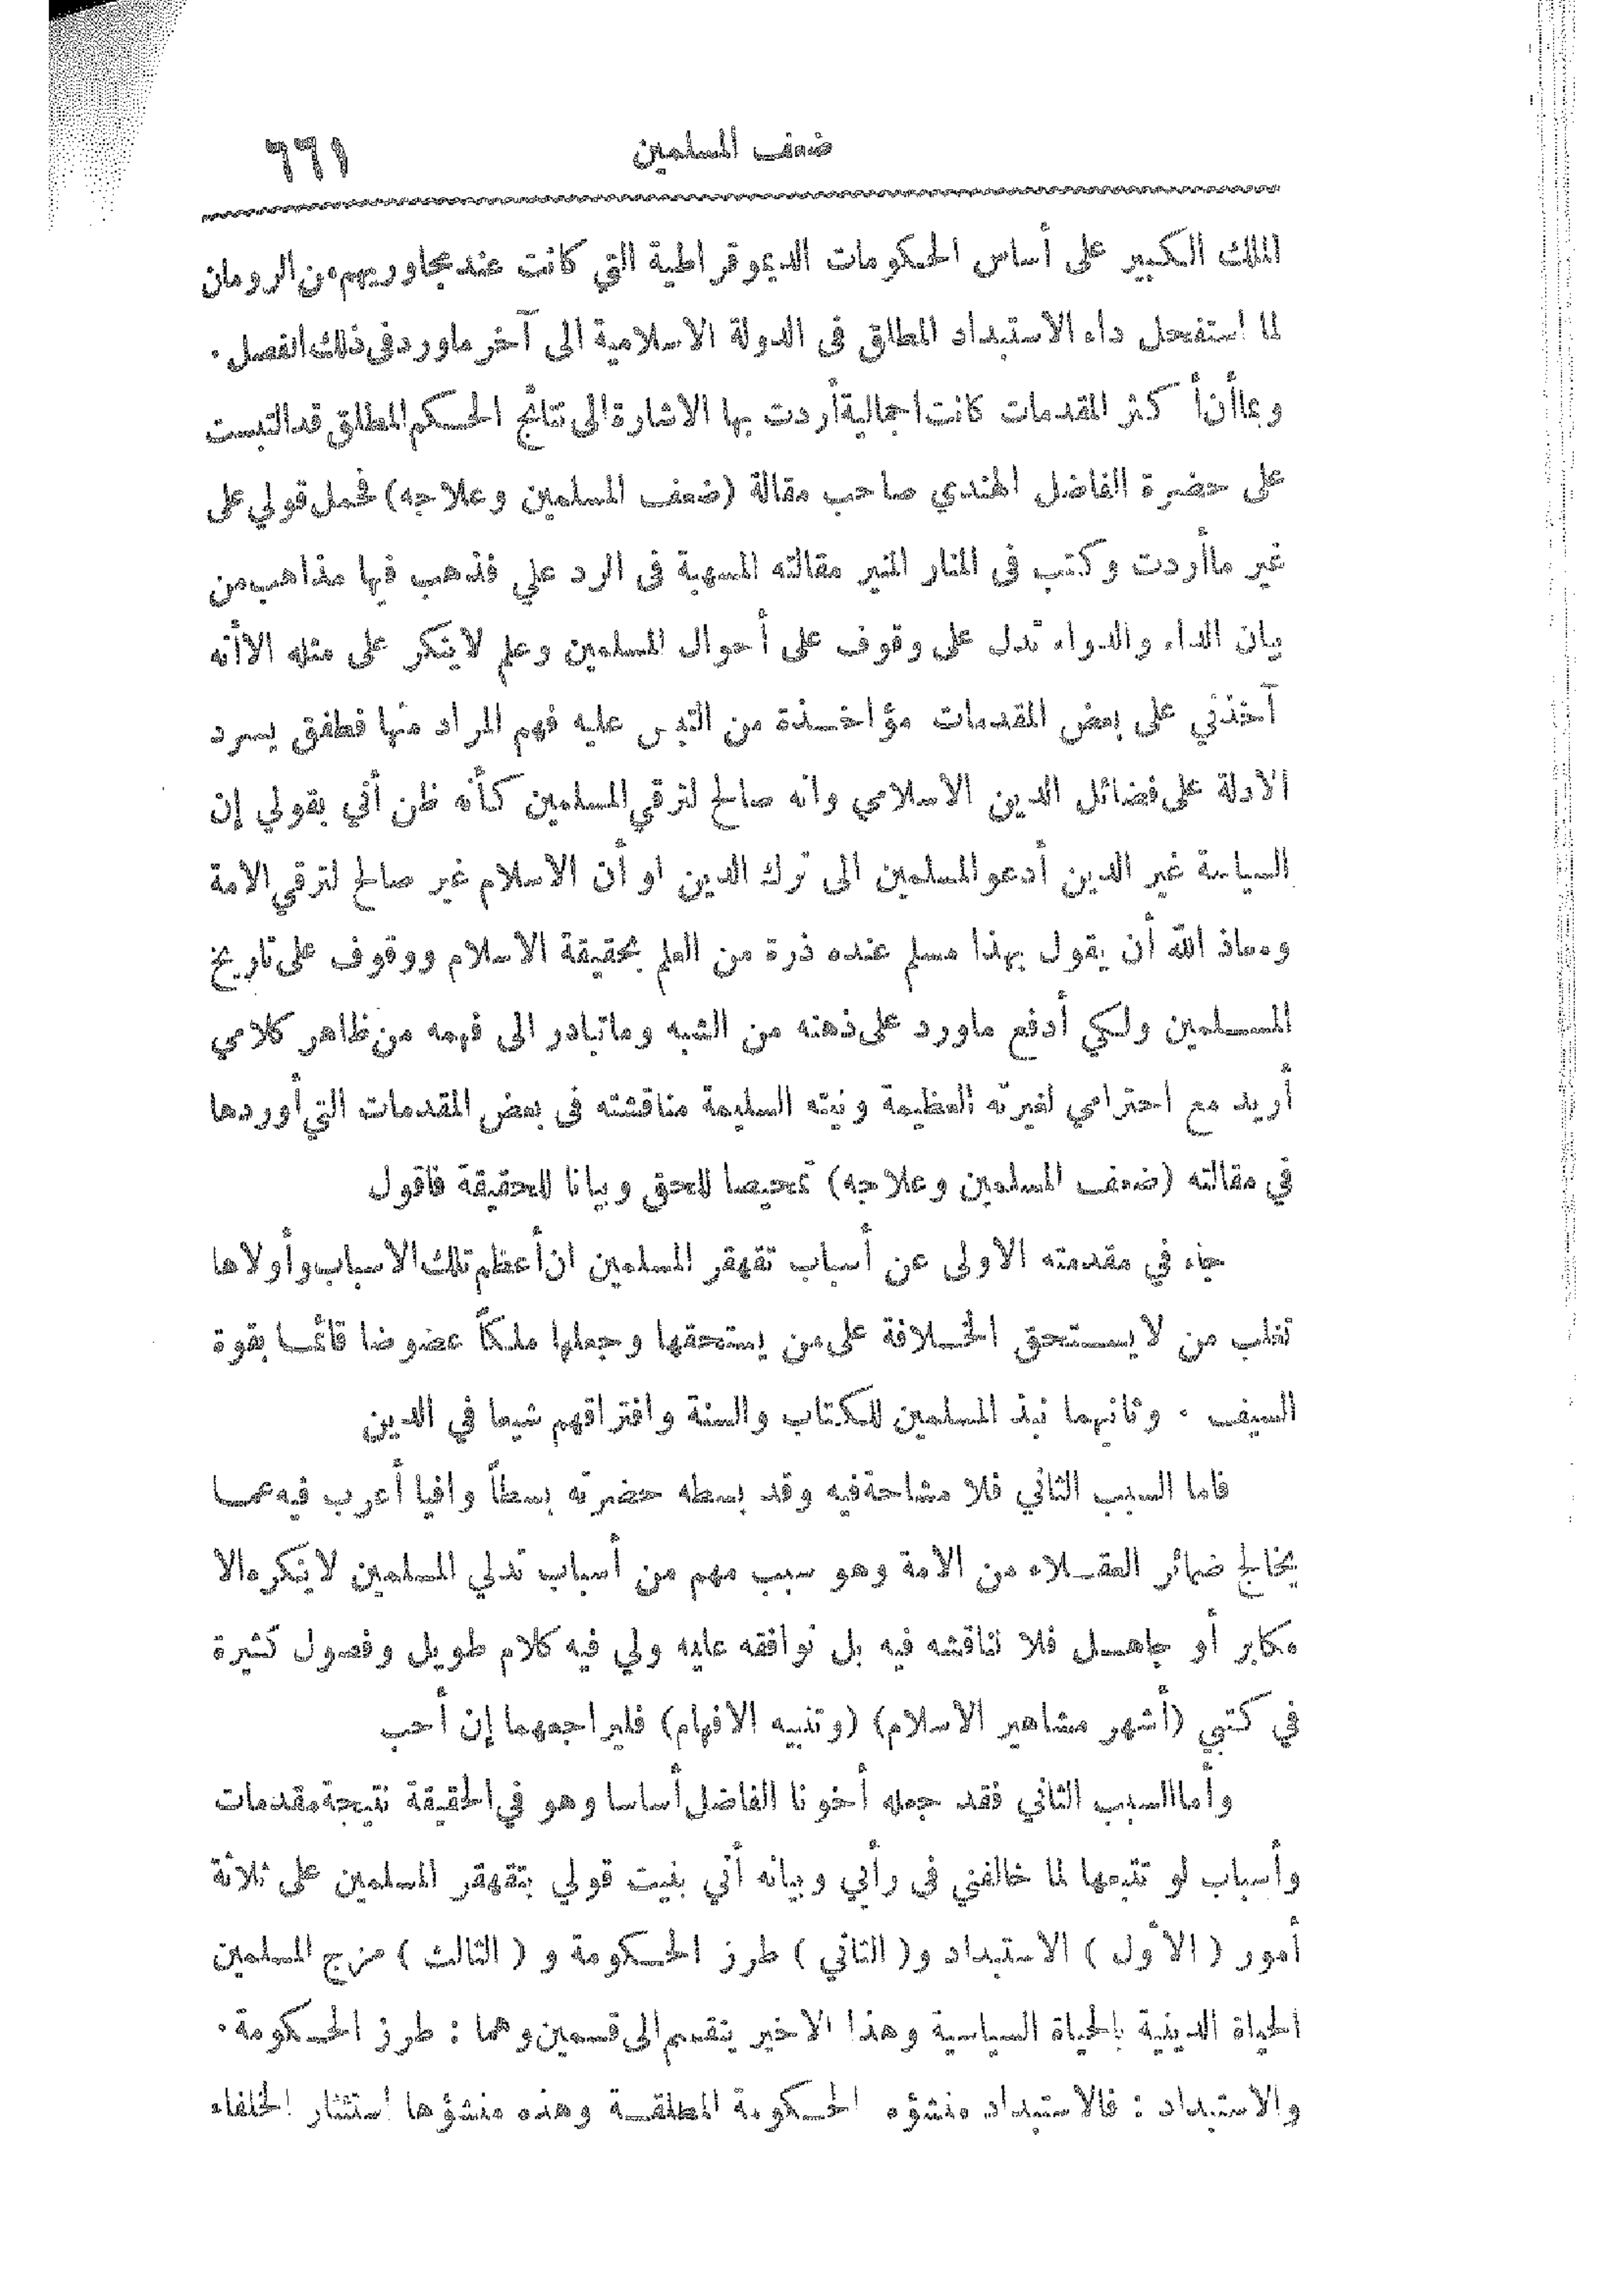 ضعف المسلمين ٦٦١
الملك الكبير على أساس الحكومات الديموقراطية التي كانت عند مجاوريهم من الرومان
لما استفحل داء الاستبداد المطلق فى الدولة الاسلامية الى آخر ماورد فى ذلك الفصل .
وبما أن أكثر المقدمات كانت اجمالية أردت بها الاشارة الى نتائج الحكم المطلق قد التبست
على حضرة الفاضل الهندي صاحب مقالة (ضعف المسلمين وعلاجه) فحمل قولي على
غير ما أردت وكتب فى المنار المنير مقالته المسهبة فى الرد علي فذهب فيها مذاهب من
بيان الداء والدواء تدل على وقوف على أحوال المسلمين وعلم لا ينكر على مثله الا أنه
آخذني على بعض المقدمات مؤاخذة من التبس عليه فهم المراد منها فطفق يسرد
الادلة على فضائل الدين الاسلامي وانه صالح لترقي المسلمين كأنه ظن أني بقولي إن
السياسة غير الدين أدعو المسلمين الى ترك الدين او أن الاسلام غير صالح لترقي الامة
ومعاذ الله أن يقول بهذا مسلم عنده ذرة من العلم بحقيقة الاسلام ووقوف على تاريخ
المسلمين ولكي أدفع ماورد على ذهنه من الشبه وماتبادر الى فهمه من ظاهر كلامي
أريد مع احترامي لغيرته العظيمة ونيته السليمة مناقشته فى بعض المقدمات التي أوردها
في مقالته (ضعف المسلمين وعلاجه) تمحيصا للحق وبيانا للحقيقة فاقول
جاء في مقدمته الاولى عن أسباب تقهقر المسلمين ان أعظم تلك الاسباب وأولاها
تغلب من لا يستحق الخلافة على من يستحقها وجعلها ملكاً عضوضا قائما بقوة
السيف . وثانيهما نبذ المسلمين للكتاب والسنة وافتراقهم شيعا في الدين
فاما السبب الثاني فلا مشاحة فيه وقد بسطه حضرته بسطاً وافيا أعرب فيه عما
يخالج ضمائر العقلاء من الامة وهو سبب مهم من أسباب تدلي المسلمين لا ينكره الا
مكابر أو جاهل فلا نناقشه فيه بل نوافقه عليه ولي فيه كلام طويل وفصول كثيرة
في كتبي (أشهر مشاهير الاسلام) (وتنبيه الافهام) فليراجعهما إن أحب
وأما السبب الثاني فقد جعله أخونا الفاضل أساسا وهو في الحقيقة نتيجة مقدمات
وأسباب لو تتبعها لما خالفني فى رأيي وبيانه أني بنيت قولي بتقهقر المسلمين على ثلاثة
أمور ( الأول ) الاستبداد و( الثاني ) طرز الحكومة و ( الثالث ) مزج المسلمين
الحياة الدينية بالحياة السياسية وهذا الاخير ينقسم الى قسمين وهما : طرز الحكومة .
والاستبداد : فالاستبداد منشؤه الحكومة المطلقة وهذه منشؤها استئثار الخلفاء